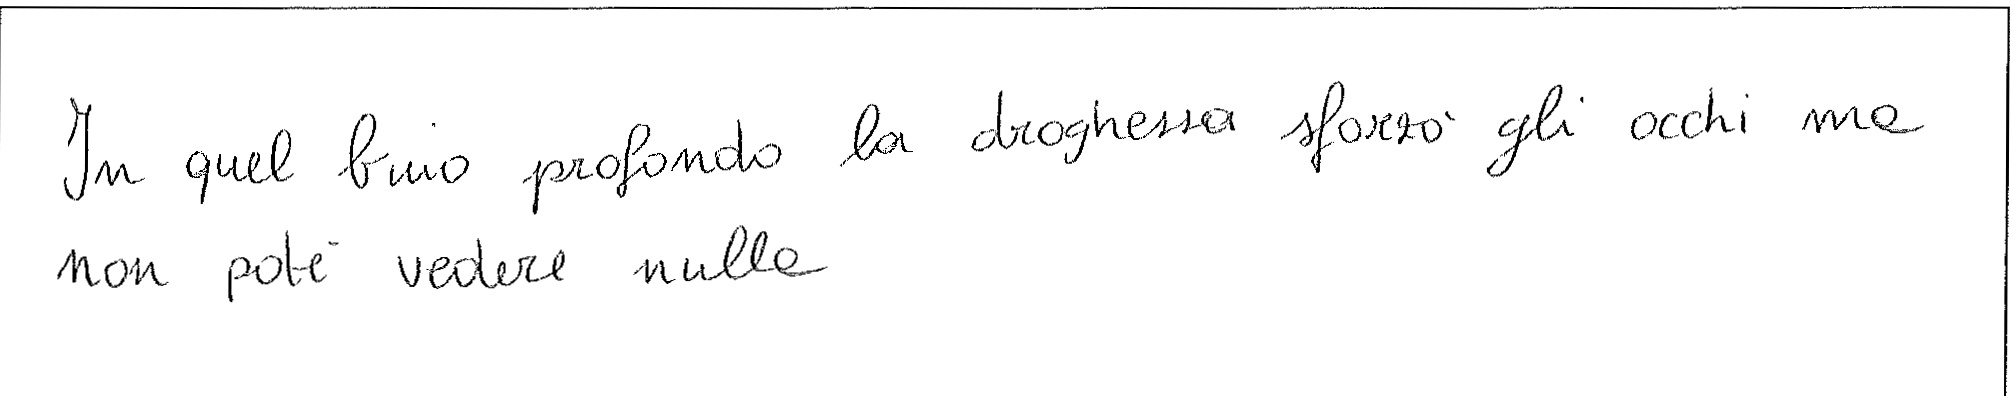 In quel buio profondo la droghessa sforzò gli occhi ma
non poté vedere nulla